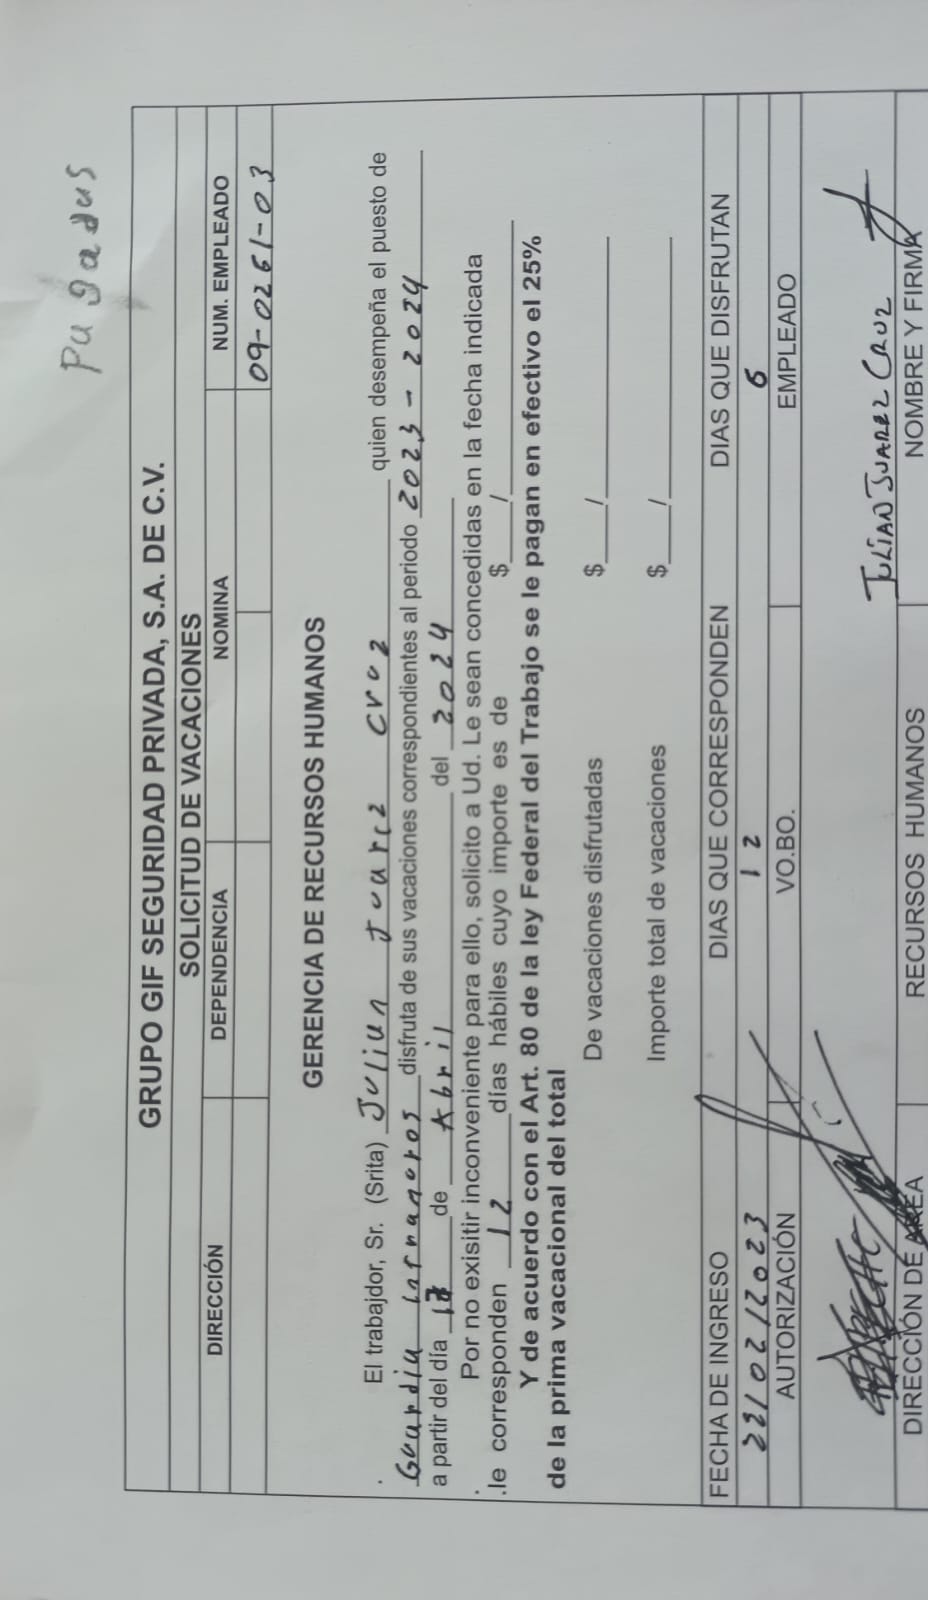 Pagadas
GRUPO GIF SEGURIDAD PRIVADA, S.A. DE C.V.
SOLICITUD DE VACACIONES
DIRECCIÓN DEPENDENCIA NOMINA NUM. EMPLEADO
09-0261-03
GERENCIA DE RECURSOS HUMANOS
. El trabajdor, Sr. (Srita) Julian Juarez Cruz quien desempeña el puesto de
Guardia intramuros disfruta de sus vacaciones correspondientes al periodo 2023 - 2024
a partir del día de Abril del 2024
. Por no exisitir inconveniente para ello, solicito a Ud. Le sean concedidas en la fecha indicada
.le corresponden 12 días hábiles cuyo importe es de $ /
Y de acuerdo con el Art. 80 de la ley Federal del Trabajo se le pagan en efectivo el 25%
de la prima vacacional del total
De vacaciones disfrutadas $ /
Importe total de vacaciones $ /
FECHA DE INGRESO DIAS QUE CORRESPONDEN DIAS QUE DISFRUTAN
22/02/2023 12 6
AUTORIZACIÓN VO.BO. EMPLEADO
JULIAN JUAREZ CRUZ
DIRECCIÓN DE AREA RECURSOS HUMANOS NOMBRE Y FIRMA